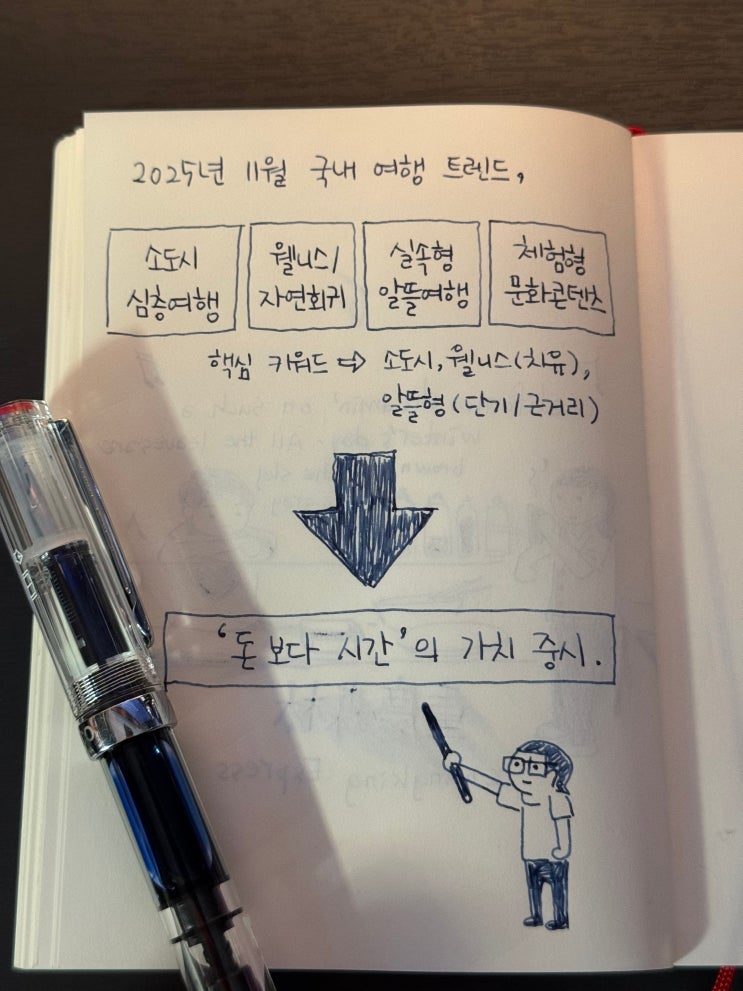 2025년 11월 국내 여행 트렌드,
소도시
심층여행
웰니스/
자연회귀
실속형
알뜰여행
체험형
문화콘텐츠
핵심 키워드 ⇨ 소도시, 웰니스(치유),
알뜰형(단기/근거리)
'돈보다 시간'의 가치 중시.